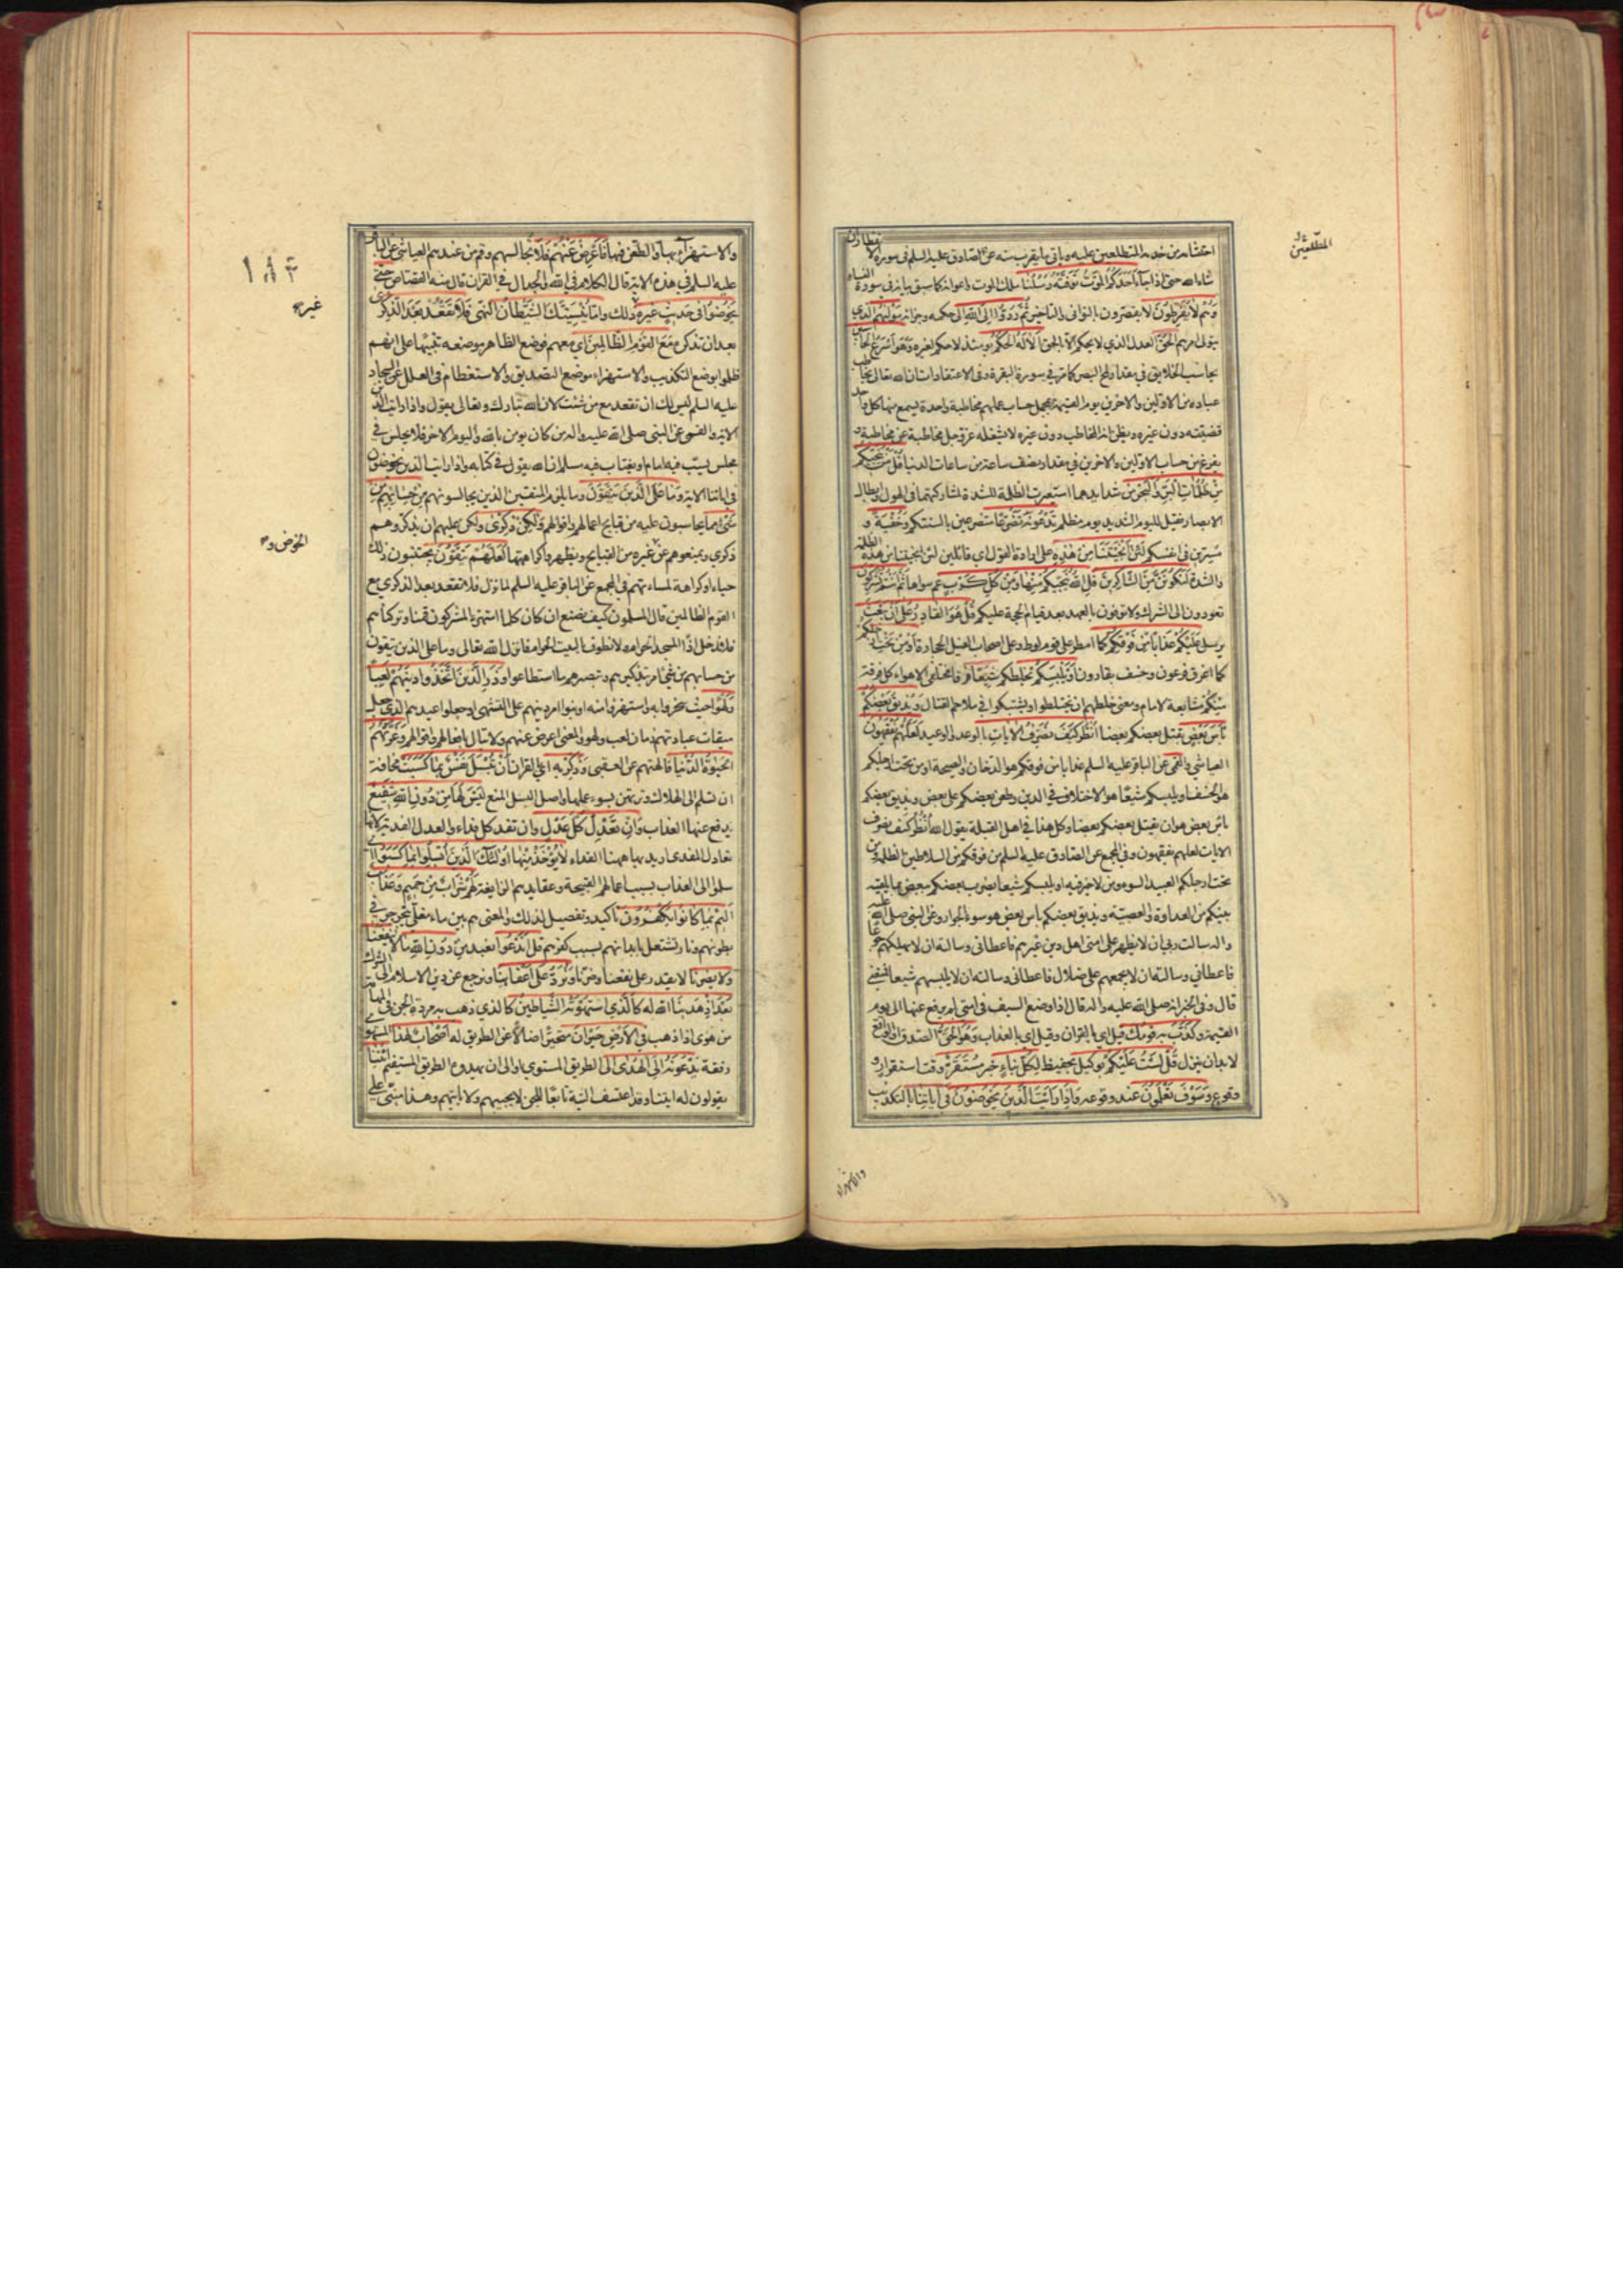 المتطلعين
احتشامه من خدمه المتطلعين عليه وياتي ما يقرب منه عن الصادق عليه السلم في سورة الانفطار ان
شاء الله حتى اذا جاء احدكم الموت توفته رسلنا ملك الموت واعوانه كما سبق بيانه في سورة النساء
وهم لا يفرطون لا يقصرون بالتواني والتاخير ثم ردوا الى الله الى حكمه وجزائه موليهم الذي
يتولى امرهم الحق العدل الذي لا يحكم الا بالحق الا له الحكم يومئذ لا حكم لغيره وهو اسرع الحاسبين
يحاسب الخلايق في مقدار لمح البصر كما مر في سورة البقرة وفي الاعتقادات ان الله تعالى يخاطب
عباده من الاولين والاخرين يوم القيمة بمجمل حساب عملهم مخاطبة واحدة يسمع منها كل واحد
قضيته دون غيره ويظن انه المخاطب دون غيره لا يشغله عز وجل مخاطبة عن مخاطبة و
يفرغ من حساب الاولين والاخرين في مقدار نصف ساعة من ساعات الدنيا قل من ينجيكم
من ظلمات البر والبحر من شدايدهما استعيرت الظلمة للشدة لمشاركتهما في الهول وابطال
الابصار فقيل لليوم الشديد يوم مظلم تدعونه تضرعا متضرعين بالسنتكم وخفية و
مسرين في انفسكم لئن انجيتنا من هذه على ارادة القول اي قائلين لئن انجيتنا من هذه الظلمة
والشدة لنكونن من الشاكرين قل الله ينجيكم منها ومن كل كرب غم سواها ثم انتم تشركون
تعودون الى الشرك ولا توفون بالعهد بعد قيام الحجة عليكم قل هو القادر على ان يبعث
يرسل عليكم عذابا من فوقكم كما امطر على قوم لوط وعلى اصحاب الفيل الحجارة او من تحت ارجلكم
كما اغرق فرعون وخسف بقارون او يلبسكم يخلطكم شيعا فرقا مختلفي الاهواء كل فرقة
منكم مشايعة لامام ومعنى خلطهم ان يختلطوا ويشتبكوا في ملاحم القتال ويذيق بعضكم
باس بعض يقتل بعضكم بعضا انظر كيف نصرف الايات بالوعد والوعيد لعلهم يفقهون
العياشي والقمي عن الباقر عليه السلم عذابا من فوقكم هو الدخان والصيحة او من تحت ارجلكم
هو الخسف او يلبسكم شيعا هو الاختلاف في الدين وطعن بعضكم على بعض ويذيق بعضكم
باس بعض هو ان يقتل بعضكم بعضا وكل هذا في اهل القبلة يقول الله انظر كيف نصرف
الايات لعلهم يفقهون وفي المجمع عن الصادق عليه السلم من فوقكم من السلاطين الظلمة ومن
تحت ارجلكم العبيد السوء ومن لا خير فيه او يلبسكم شيعا يضرب بعضكم ببعض بما يلقيه
بينكم من العداوة والعصبية ويذيق بعضكم باس بعض هو سوء الجوار وعن النبي صلى الله عليه
واله سالت ربي ان لا يظهر على امتي اهل دين غيرهم فاعطاني وسالته ان لا يهلكهم جوعا
فاعطاني وسالته ان لا يجمعهم على ضلال فاعطاني وسالته ان لا يلبسهم شيعا فمنعني
قال وفي الخبر انه صلى الله عليه واله قال اذا وضع السيف في امتي لم يرفع عنها الى يوم
القيمة وكذب به قومك قيل اي بالقران وقيل اي بالعذاب وهو الحق الصدق او الواقع
لا بد ان ينزل قل لست عليكم بوكيل بحفيظ لكل نباء خبر مستقر وقت استقرار و
وقوع وسوف تعلمون عند وقوعه واذا رايت الذين يخوضون في اياتنا بالتكذيب
والاستهزاء
١٨٣
غيره
الخوض و
والاستهزاء بها والطعن فيها فاعرض عنهم فلا تجالسهم وقم من عندهم العياشي عن الباقر
عليه السلم في هذه الاية قال الكلام في الله والجدال في القران قال منه القصاص حتى
يخوضوا في حديث غيره ذلك واما ينسينك الشيطان النهي فلا تقعد بعد الذكرى
بعد ان تذكر مع القوم الظالمين اي معهم فوضع الظاهر موضعه تنبيها على انهم
ظلموا بوضع التكذيب والاستهزاء موضع التصديق والاستعظام في العلل عن السجاد
عليه السلم ليس لك ان تقعد مع من شئت لان الله تبارك وتعالى يقول واذا رايت الذين
الاية والقمي عن النبي صلى الله عليه واله من كان يومن بالله واليوم الاخر فلا يجلس في
مجلس يسب فيه امام او يغتاب فيه مسلم ان الله يقول في كتابه واذا رايت الذين يخوضون
في اياتنا الاية وما على الذين يتقون وما يلزم المتقين الذين يجالسونهم من حسابهم من
شئ مما يحاسبون عليه من قبايح اعمالهم واقوالهم ولكن ذكرى ولكن عليهم ان يذكروهم
ذكرى ويمنعوهم عن غيره من القبايح ويظهروا كراهتها لعلهم يتقون يجتنبون ذلك
حياء او كراهة لمساءتهم في المجمع عن الباقر عليه السلم لما نزل فلا تقعد بعد الذكرى مع
القوم الظالمين قال المسلمون كيف نصنع ان كان كلما استهزء المشركون قمنا وتركناهم
فلا ندخل اذا المسجد الحرام ولا نطوف بالبيت الحرام فانزل الله تعالى وما على الذين يتقون
من حسابهم من شئ امر بتذكيرهم وتبصيرهم ما استطاعوا وذر الذين اتخذوا دينهم لعبا
ولهوا حيث سخروا به واستهزؤا منه او بنوا امر دينهم على التشهي او جعلوا عيدهم الذي جعل
ميقات عبادتهم زمان لعب ولهو والمعنى اعرض عنهم ولا تبال بافعالهم واقوالهم وغرتهم
الحيوة الدنيا فالهتهم عن العقبى وذكر به اي بالقران ان تبسل نفس بما كسبت مخافة
ان تسلم الى الهلاك وترتهن بسوء عملها واصل البسل المنع ليس لها من دون الله شفيع
يدفع عنها العذاب وان تعدل كل عدل وان تفد كل فداء والعدل الفدية لانها
تعادل المفدى اريد بها ههنا الفداء لا يؤخذ منها اولئك الذين ابسلوا بما كسبوا اي
سلموا الى العذاب بسبب اعمالهم القبيحة وعقايدهم الزايغة لهم شراب من حميم وعذاب
اليم بما كانوا يكفرون تاكيد وتفصيل لذلك والمعنى هم بين ماء مغلي يتجرجر في
بطونهم ونار تشتعل بابدانهم بسبب كفرهم قل اندعوا نعبد من دون الله ما لا ينفعنا
ولا يضرنا لا يقدر على نفعنا وضرنا ونرد على اعقابنا ونرجع عن دين الاسلام الى الشرك
بعد اذ هدينا الله له كالذي استهوته الشياطين كالذي ذهب به مردة الجن في المهامه
من هوى اذا ذهب في الارض حيران متحيرا ضالا عن الطريق له اصحاب لهذا المستهوى
رفقة يدعونه الى الهدى الى الطريق المستوي او الى ان يهدوه الطريق المستقيم ائتنا
يقولون له ائتنا وقد اعتسف التيه تابعا للجن لا يجيبهم ولا ياتيهم وهذا مبني على